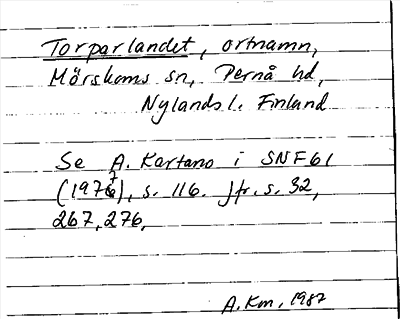 Torparlandet, ortnamn,
Mörskoms sn, Pernå hd,
Nylands l. Finland
Se A. Kartano i SNF 61
(1976), s. 116. Jfr. s. 32,
267, 276,
A. Km, 1987